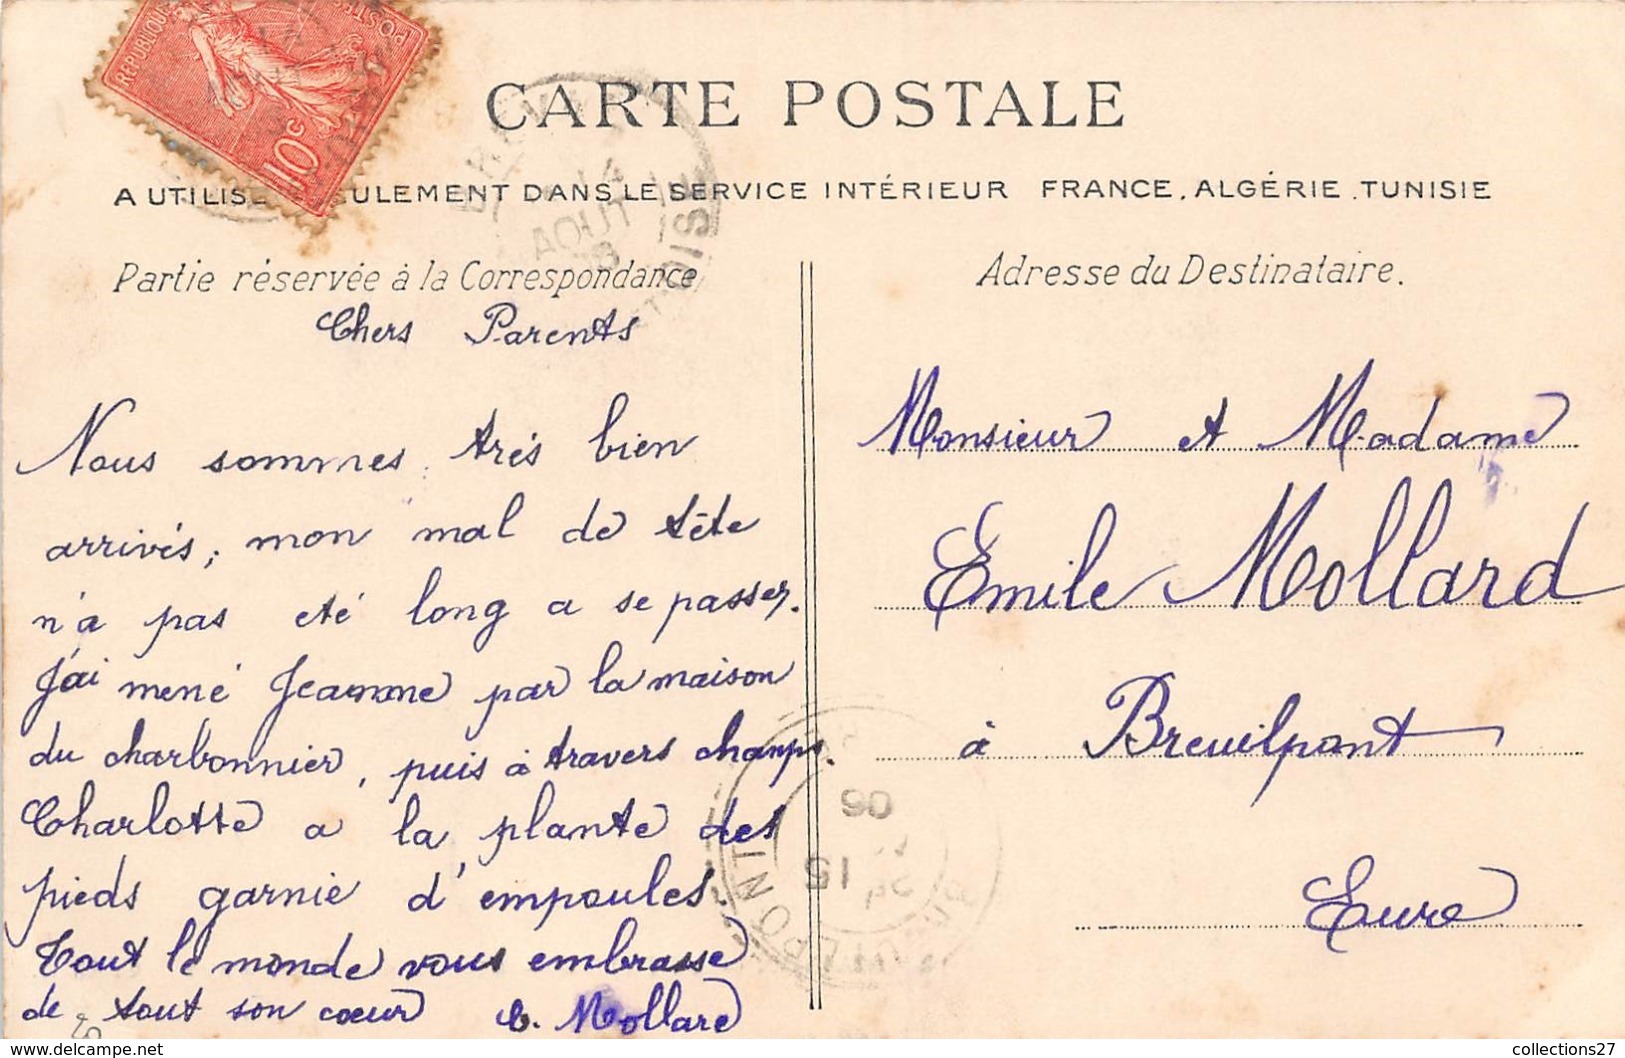 RÉPUBLIQUE
POSTES
10c
CARTE POSTALE
A UTILISE ULEMENT DANS LE SERVICE INTÉRIEUR FRANCE, ALGÉRIE, TUNISIE
14
AOUT
Partie réservée à la Correspondance
Chers Parents
Nous sommes très bien
arrivés; mon mal de tête
n'a pas eté long a se passer.
J'ai mené Jeanne par la maison
du charbonnier, puis à travers champs.
Charlotte a la plante des
pieds garnie d'empoules
Tout le monde vous embrasse
de tout son cœur C. Mollard
Adresse du Destinataire.
Monsieur et Madame
Emile Mollard
à Breuilpont
Eure
15
06
collections27